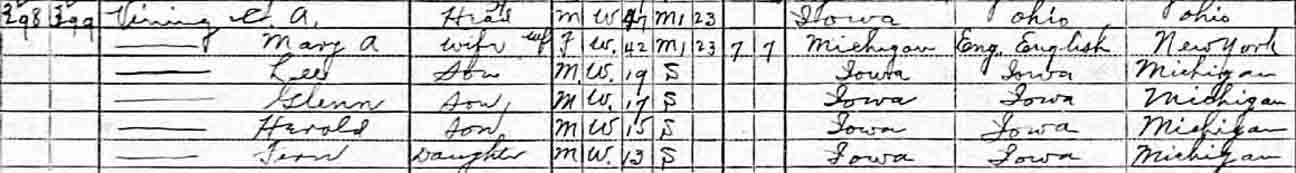 298 299 Vining C. A. Head M W 47 M1 23 Iowa Ohio Ohio
Mary A Wife F W. 42 M1 23 7 7 Michigan Eng. English New York
Lee Son M W. 19 S Iowa Iowa Michigan
Glenn Son M W. 17 S Iowa Iowa Michigan
Herold Son M W 15 S Iowa Iowa Michigan
Fern Daughter M W. 13 S Iowa Iowa Michigan